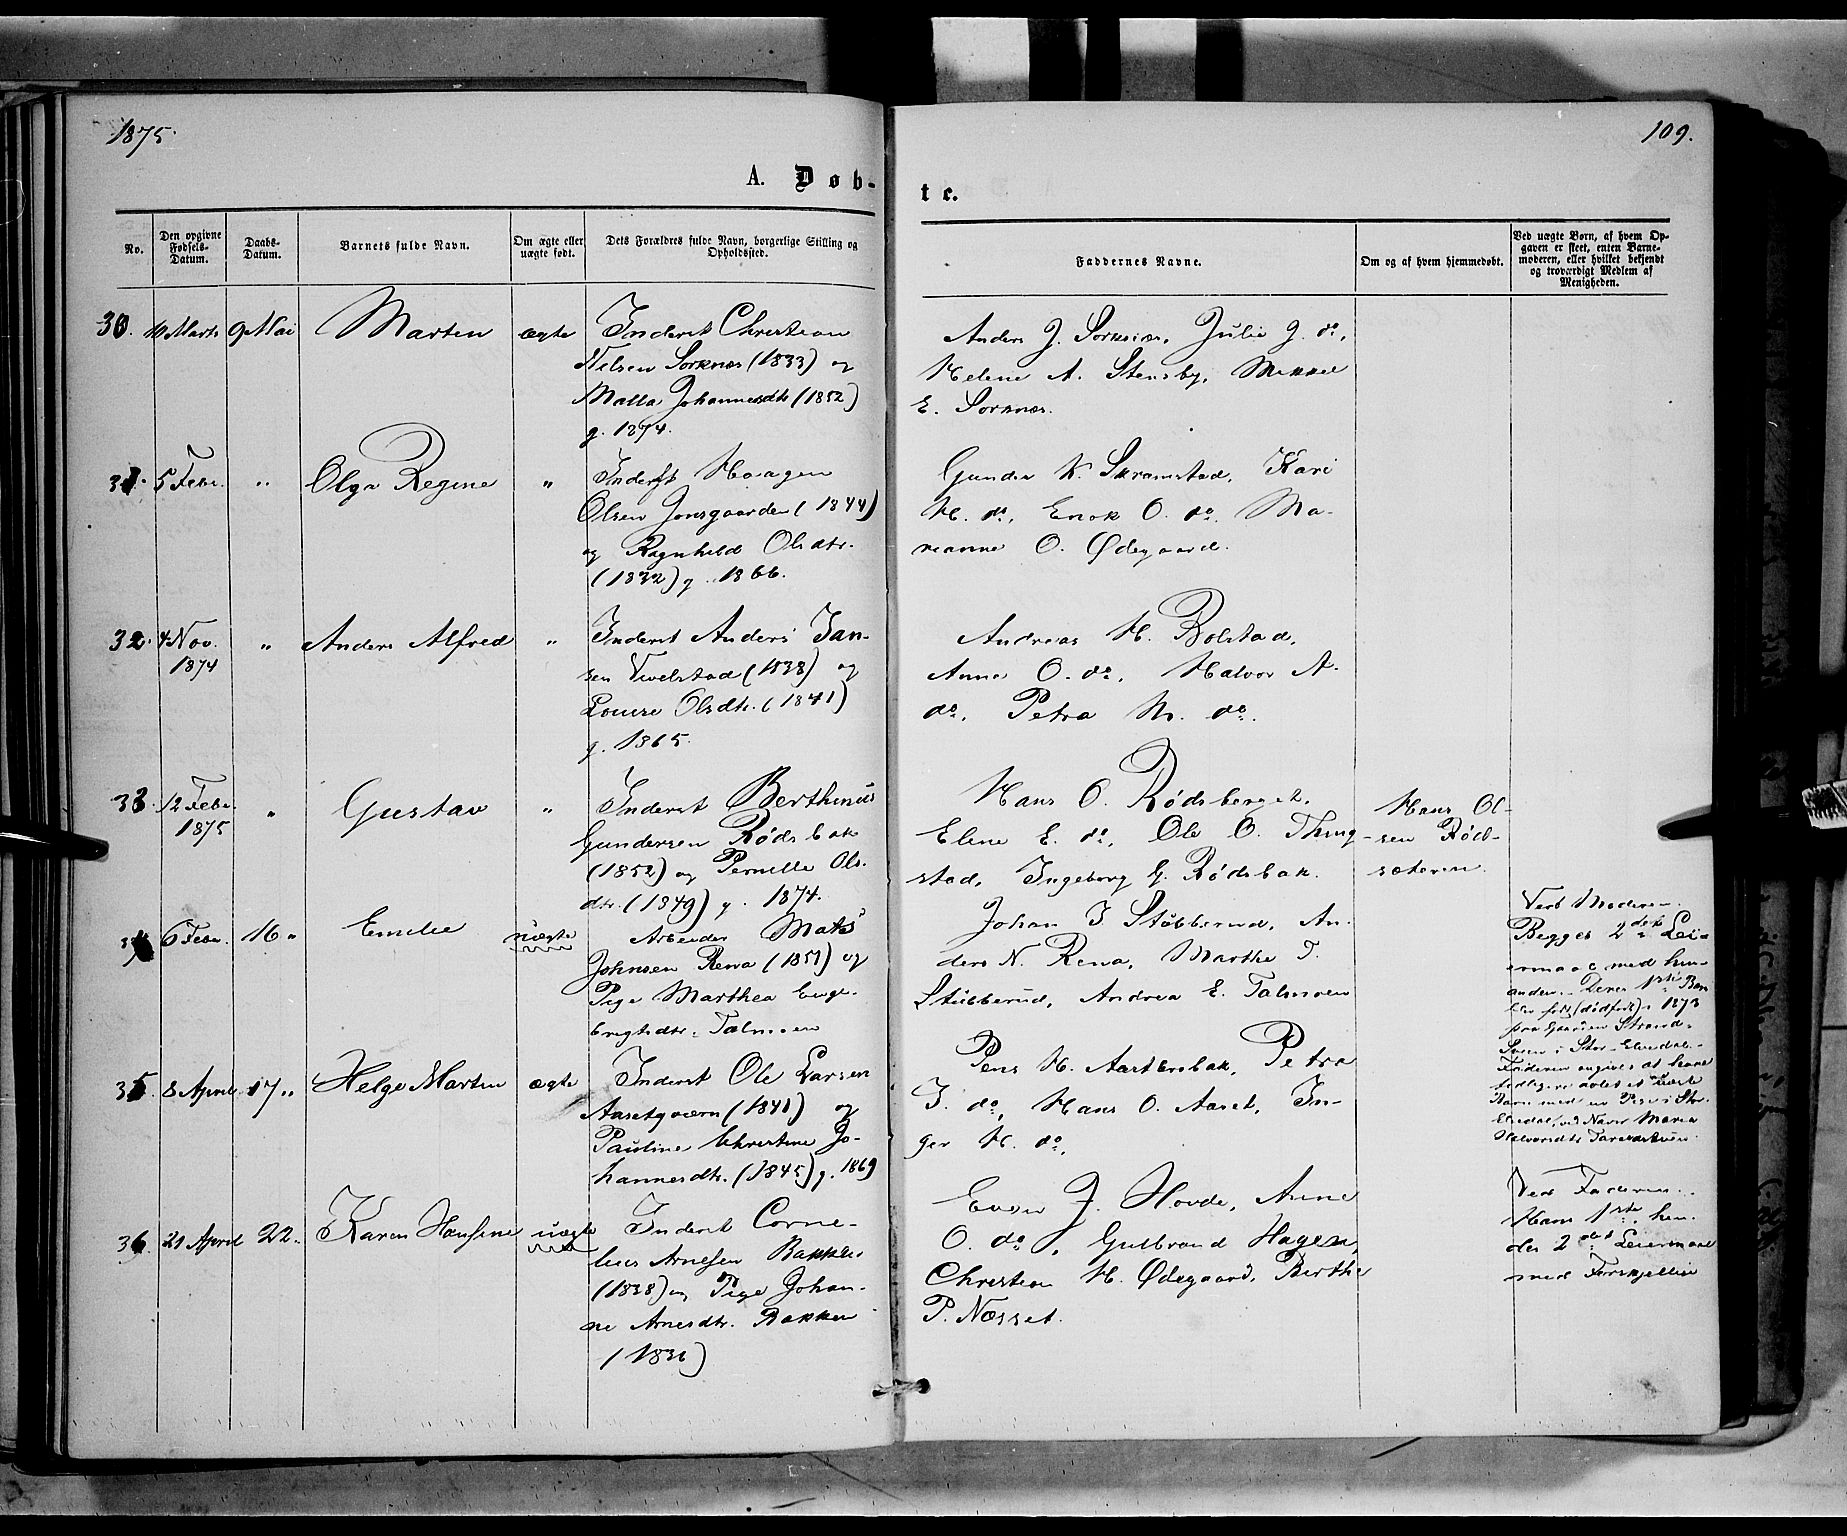 1875.
109.
A. Døb-
te.
No.
Den opgivne Fødsels-Datum.
Daabs-Datum.
Barnets fulde Navn.
Om ægte eller uægte født.
Dets Forældres fulde Navn, borgerlige Stilling og Opholdssted.
Faddernes Navne.
Om og af hvem hjemmedøbt.
Ved uægte Børn, af hvem Opgaven er skeet, enten Barnemoderen, eller hvilket bekjendt og troværdigt Medlem af Menigheden.
30. 10 Marts 9 Mai Marten ægte
Inderst Christian
Nelsen Sorknæs (1833) og
Malla Johannesdtr (1852)
g. 1874.
Anders J. Sorknæs, Julie J. do,
Helene A. Stensby, Mikkel
E. Sorknæs.
31. 5 Febr. " Olga Regine "
Inderst Haagen
Olsen Jonsgaarden (1844)
og Ragnhild Olsdtr.
(1832) g. 1866.
Gunder K. Skramstad, Kari
H. do, Enok O. do, Ma-
rianne O. Ødegaard.
32. 4 Nov. 1874 " Anders Alfred "
Inderst Anders Jan-
sen Tvelstad (1838) og
Louise Olsdtr. (1841)
g. 1865.
Andreas H. Bolstad,
Anne O. do, Halvor A.
do, Petra M. do.
33. 12 Febr. 1875 " Gustav "
Inderst Berthinus
Gundersen Rødsbak
(1852) og Pernille Ols-
dtr. (1849) g. 1874.
Hans O. Rødsberget,
Eline E. do, Ole O. Thing-
stad, Ingeborg G. Rødsbak.
Hans Ol-
sen Rød-
sæteren.
34. 6 Febr. 16 " Emilie uægte
Arbeider Mats
Johnsen Rena (1851) og
Pige Marthea Enge-
bregtsdtr. Talmoen
Johan J Stubberud, An-
ders N. Rena, Marthe T.
Stubberud, Andrea E. Talmoen
Ved Moderen.
Begges 2det Lei-
ermaal med hin-
anden. Deres 1ste Barn
blev født (dødfødt) i 1873
paa Gaarden Strand-
i Stor-Elvedal.
Faderen angives at have
tidligere avlet et uægte
Barn med en Pige i Stor-
Elvedal, ved Navn Maria
Halvorsdtr
35. 8 April 17 " Helge Martin ægte
Inderst Ole Larsen
Aasetqværn (1841) og
Pauline Christine Jo-
hannesdtr. (1845) g. 1869
Pens H. Aastenbak, Petra
J. do, Hans O. Aaset, In-
ger H. do,
36. 21 April 22. " Karen Hansine uægte
Inderst Corne-
lius Arnesen Bakken
(1838) og Pige Johan-
ne Arnesdtr. Bakken
(1836)
Even J. Hovde, Anne
O. do, Gulbrand Hagen,
Christian H. Ødegaard, Berthe
P. Næsset.
Ved Faderen.
Hans 1ste, hen-
des 2det Leiermaal
med Forskjellige